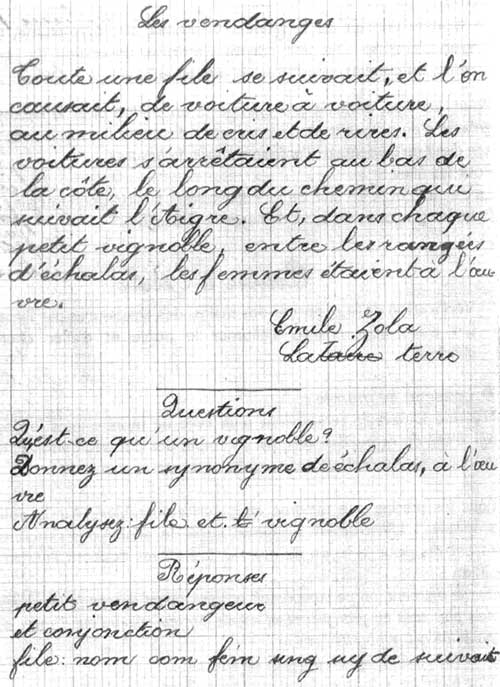 Les vendanges
Toute une file se suivait, et l'on
causait, de voiture à voiture,
au milieu de cris et de rires. Les
voitures s'arrêtaient au bas de
la côte, le long du chemin qui
suivait l'Aigre. Et, dans chaque
petit vignoble, entre les rangées
d'échalas, les femmes étaient à l'œu
vre.
Emile Zola
La terre
Questions
Qu'est-ce qu'un vignoble?
Donnez un synonyme de échalas, à l'œu
vre
Analysez: file et vignoble
Réponses
petit vendangeur
et conjonction
file: nom com fém sng suj de suivait